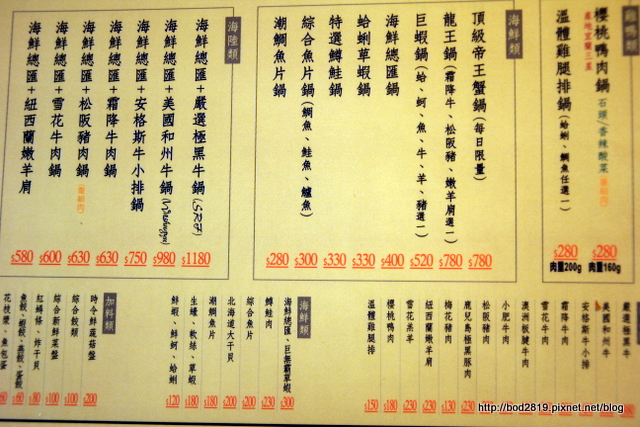 櫻桃鴨肉鍋 石頭/香辣酸菜
$280
肉量160g
溫體雞腿排鍋(蛤蜊、鯛魚任選一)
$280
肉量200g
海鮮類
頂級帝王蟹鍋(每日限量)
$780
龍王鍋(霜降牛、松阪豬、嫩羊肩選一)
$780
巨蝦鍋(蛤、蚵、魚、牛、羊、豬選一)
$520
海鮮總匯鍋
$400
蛤蜊草蝦鍋
$330
特選鱒鮭鍋
$330
綜合魚片鍋(鯛魚、鮭魚、鱸魚)
$300
潮鯛魚片鍋
$280
海陸類
海鮮總匯+嚴選極黑牛鍋(SRF)
$1180
海鮮總匯+美國和州牛鍋(Washugyu)
$980
海鮮總匯+安格斯牛小排鍋
$750
海鮮總匯+霜降牛肉鍋
$630
海鮮總匯+松阪豬肉鍋
$630
海鮮總匯+雪花牛肉鍋
$600
海鮮總匯+紐西蘭嫩羊肩
$580
嚴選極黑牛
美國和州牛
安格斯牛小排
霜降牛肉
雪花牛肉
澳洲板腱牛肉
小肥牛肉
松阪豬肉
鹿兒島極黑豚肉
$230
梅花豬肉
$130
紐西蘭嫩羊肩
$230
雪花羔羊
$230
櫻桃鴨肉
$180
溫體雞腿排
$150
海鮮類
海鮮總匯、巨無霸草蝦
$300
鱒鮭肉
$230
綜合魚片
$200
北海道大干貝
$200
潮鯛魚片
$180
生蠔、軟絲、草蝦
$180
鮮蝦、鮮蚵、蛤蜊
$120
加料類
時令鮮菇菇盤
$200
綜合餃類
$100
綜合新鮮菜盤
$100
紅蟳條、炸干貝
$80
魚餃、蝦餃、燕餃、蛋餃
$60
花枝漿、魚包蛋
http://bod2819.pixnet.net/blog